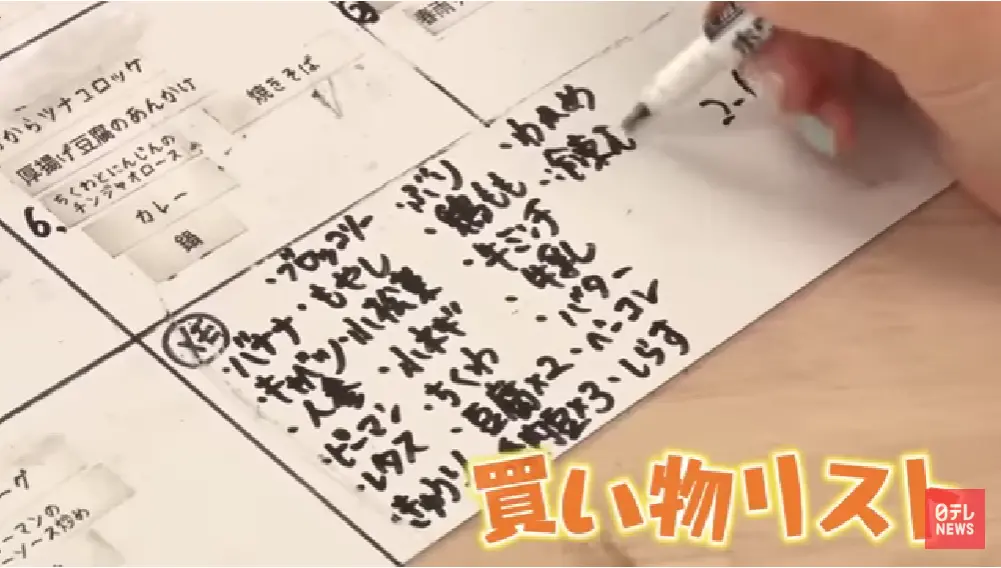 からツナコロッケ
厚揚げ豆腐のあんかけ
焼きそば
ちくわとにんじんの
チンジャオロース
6.
カレー
鍋
・バナナ
・キャベツ
・人参
・ピーマン
・レタス
・きゅうり
・ブロッコリー
・もやし
・小松菜
・ちくわ
・豆腐×2
・ぶり
・鶏もも
・牛ミンチ
・牛乳
・バター
・ベーコン
・しらす
・わかめ
ーマンの
ーソース炒め
買い物リスト
日テレ
NEWS